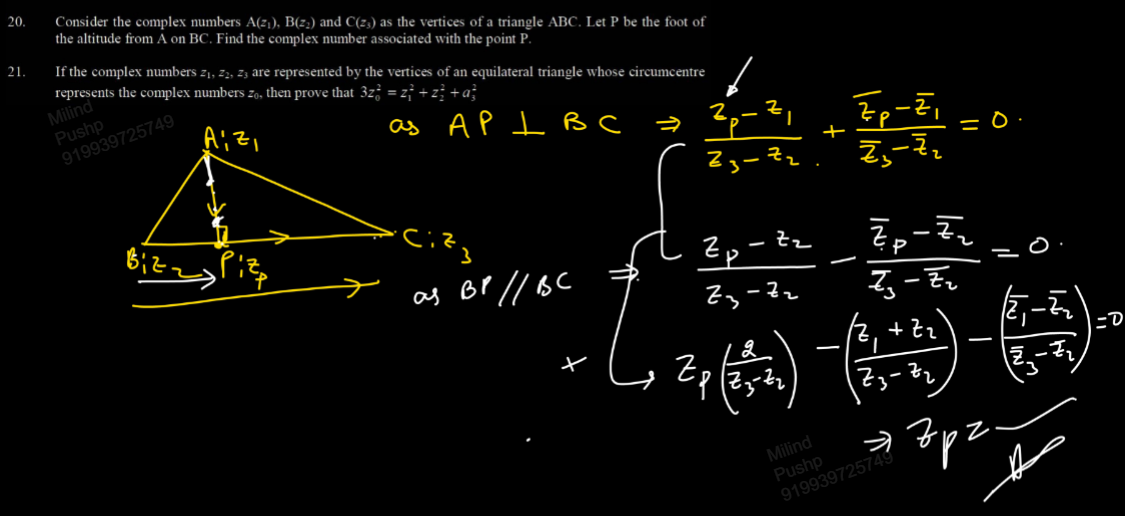 20. Consider the complex numbers A(z₁), B(z₂) and C(z₃) as the vertices of a triangle ABC. Let P be the foot of
the altitude from A on BC. Find the complex number associated with the point P.
21. If the complex numbers z₁, z₂, z₃ are represented by the vertices of an equilateral triangle whose circumcentre
represents the complex numbers z₀, then prove that 3z₀² = z₁² + z₂² + a₃²
Milind
Pushp
919939725749
A; z₁
B; z₂
P; z_p
C; z₃
as AP ⊥ BC ⇒ (z_p - z₁)/(z₃ - z₂) + (z̄_p - z̄₁)/(z̄₃ - z̄₂) = 0.
as BP // BC ⇒ (z_p - z₂)/(z₃ - z₂) - (z̄_p - z̄₂)/(z̄₃ - z̄₂) = 0.
+ → z_p (2/(z₃ - z₂)) - ((z₁ + z₂)/(z₃ - z₂)) - ((z̄₁ - z̄₂)/(z̄₃ - z̄₂)) = 0
⇒ z_p =
Milind
Pushp
919939725749